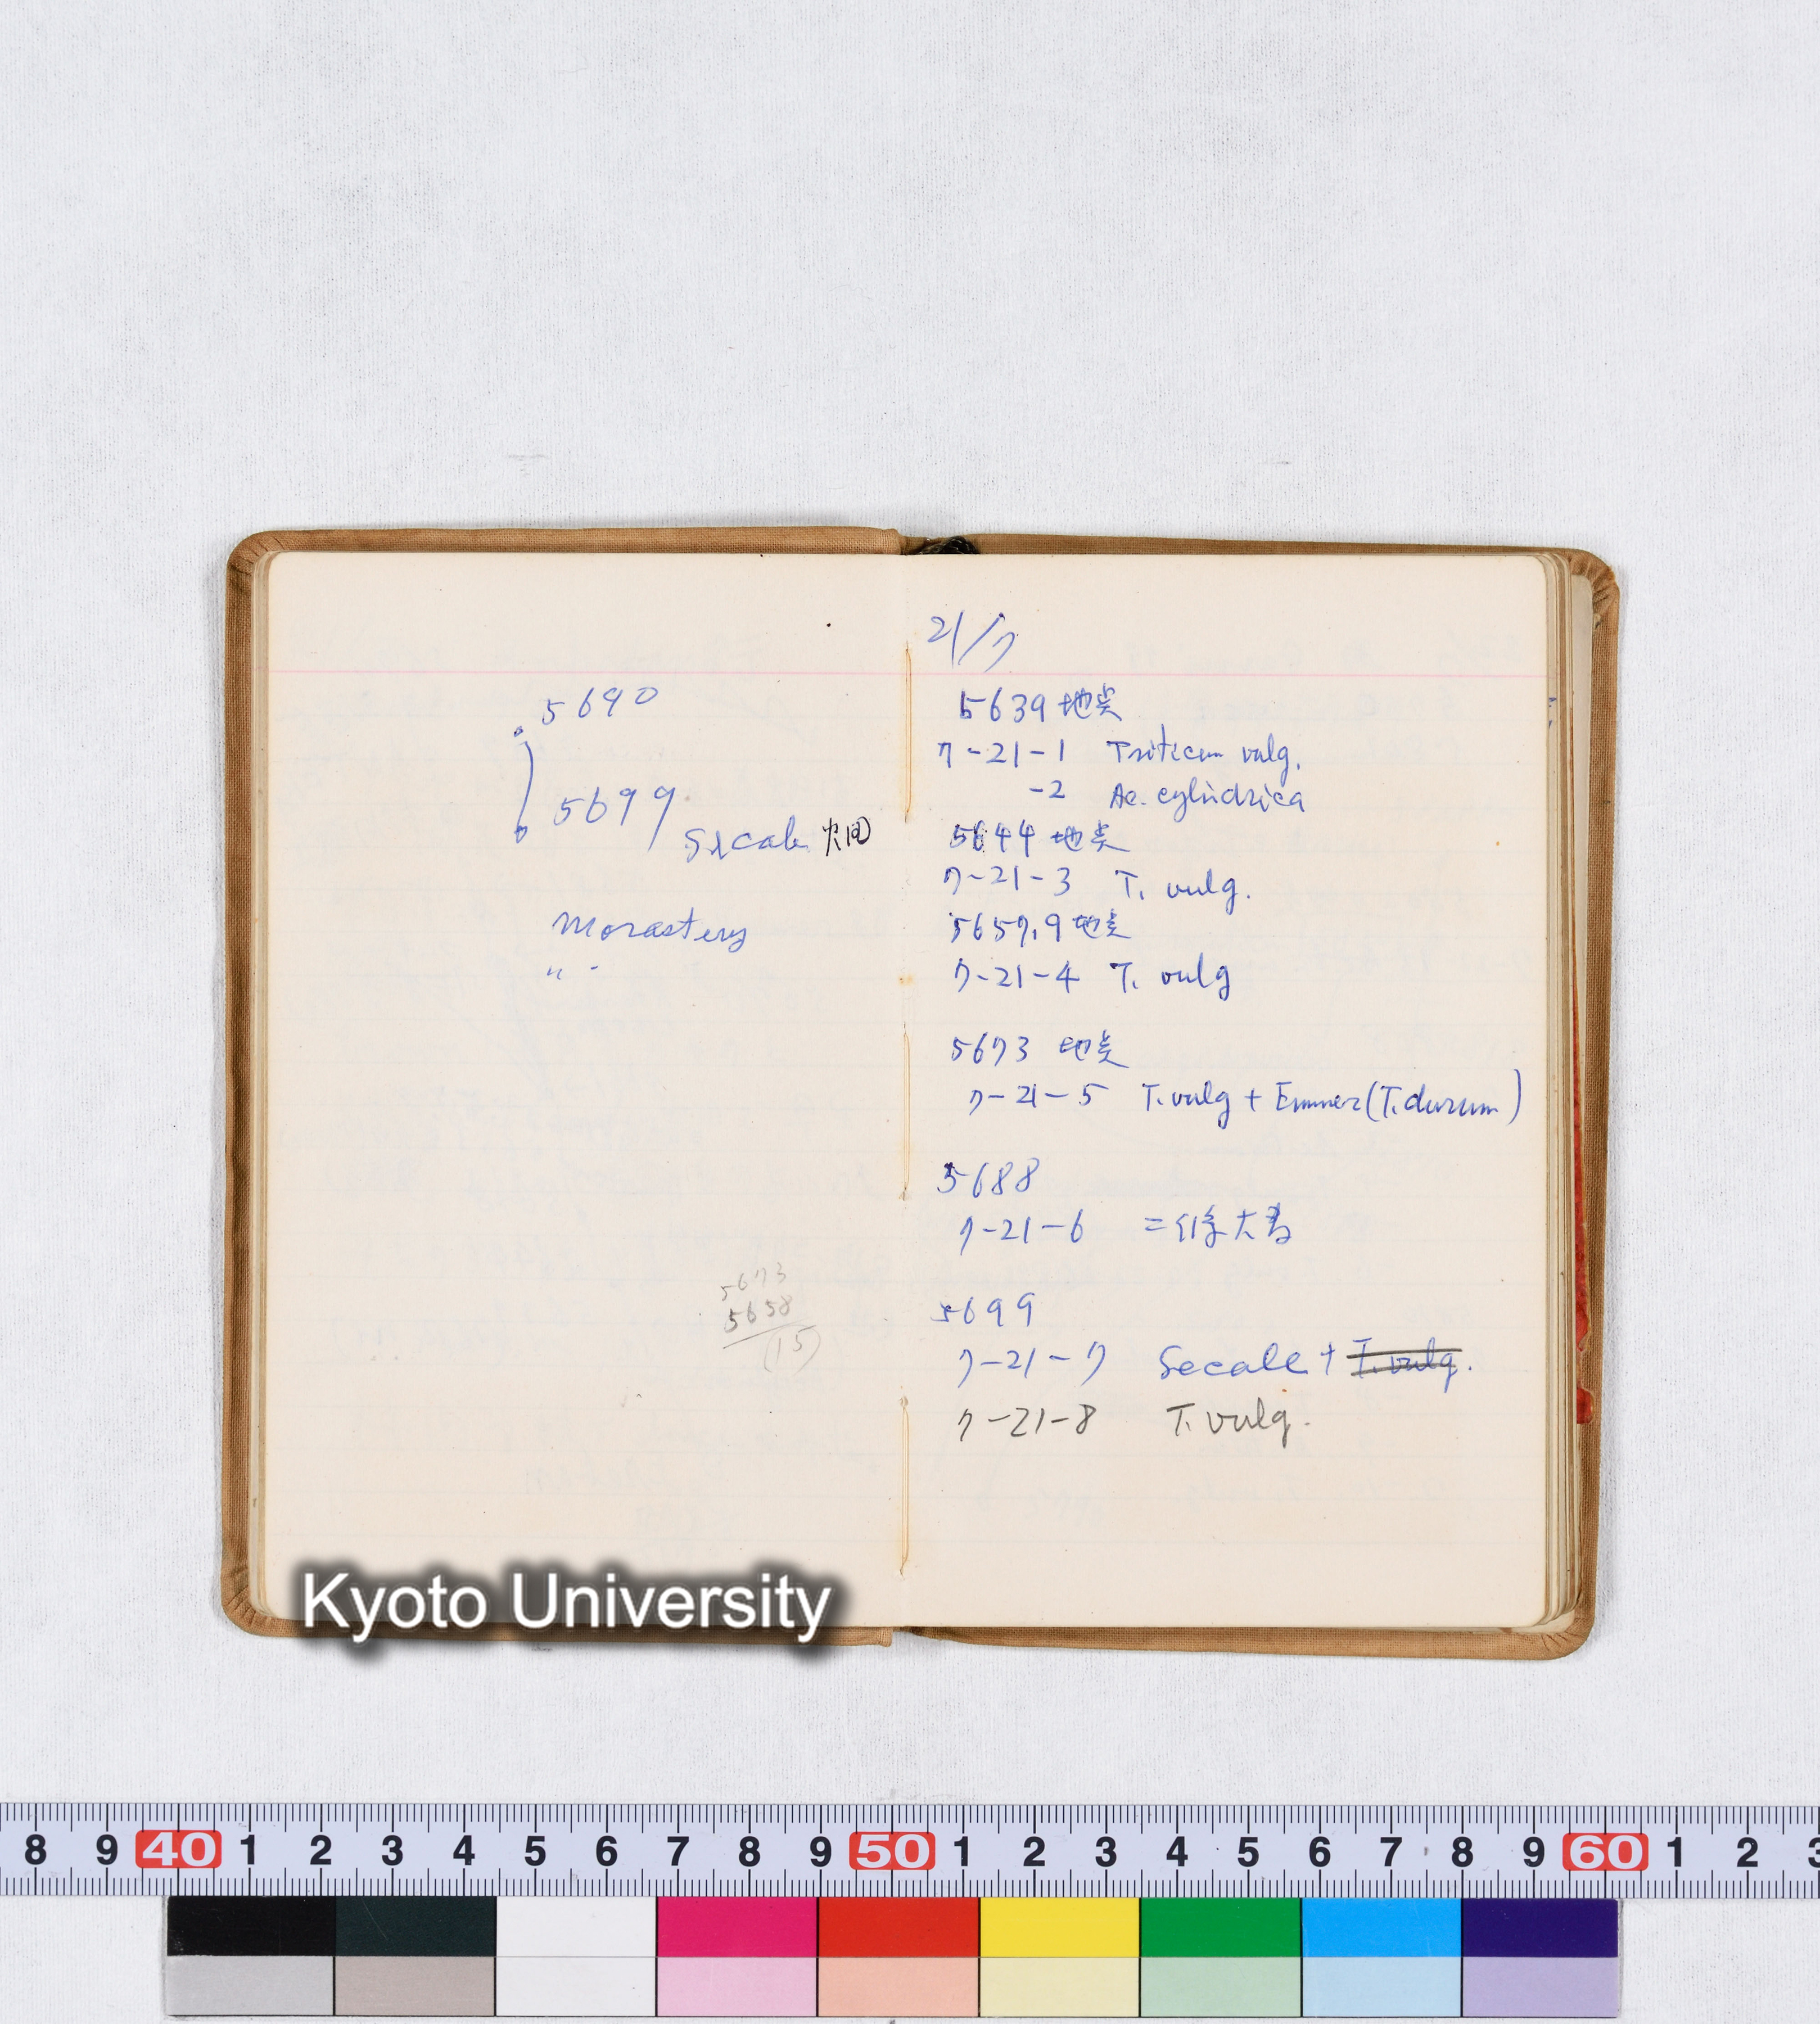 5690
5699
Secale 中間
Monastery
〃
5673
5658
(15)
21/7
5639 地点
7-21-1 Triticum vulg.
-2 Ae. cylindrica
5644 地点
7-21-3 T. vulg.
5657.9 地点
7-21-4 T. vulg
5673 地点
7-21-5 T. vulg + Emmer (T. durum)
5688
7-21-6 二條大麦
5699
7-21-7 Secale + T. vulg.
7-21-8 T. vulg.
Kyoto University
8 9 40 1 2 3 4 5 6 7 8 9 50 1 2 3 4 5 6 7 8 9 60 1 2 3